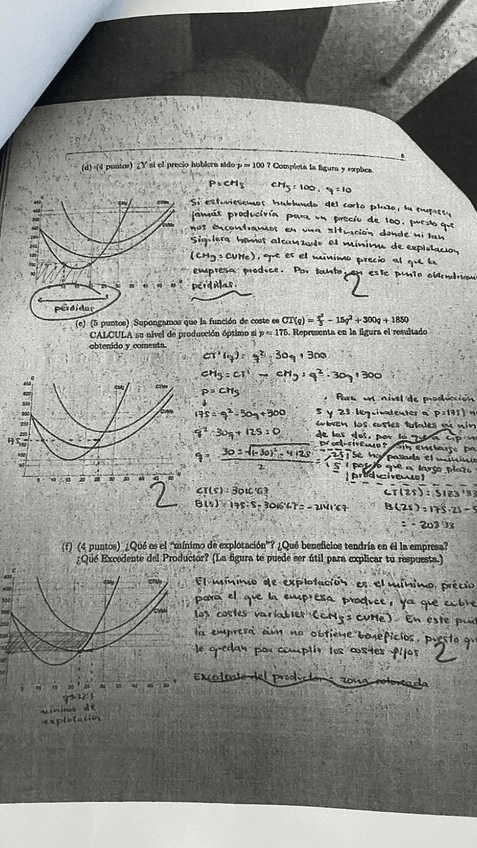 8
(d) (4 puntos) ¿Y si el precio hubiera sido p = 100 ? Completa la figura y explica.
P=CMg CMg=100, q=10
Si estuviesemos hablando del corto plazo, tu empresa
jamás produciría para un precio de 100, puesto que
nos encontramos en una situación donde ni tan
siquiera hemos alcanzado el mínimo de explotación
(CMg=CVMe), que es el mínimo precio al que la
empresa produce. Por tanto, en este punto obtendríamos
pérdidas.
2
pérdidas
(e) (5 puntos) Supongamos que la función de coste es CT(q) = q³/3 − 15q² + 300q + 1850
CALCULA su nivel de producción óptimo si p = 175. Representa en la figura el resultado
obtenido y comenta.
CT'(q) = q² - 30q + 300
CMg = CT' → CMg = q² - 30q + 300
P = CMg
175 = q² - 30q + 300
q² - 30q + 125 = 0
q = 30 ± √(-30)² - 4·125 / 2 = 25 5
CT(5) = 3016'67
B(5) = 175·5 - 3016'67 = -2141'67
Para un nivel de producción
5 y 25 (equivalentes a p=175) n
cubren los costes totales en nin
de las dos, por lo que a c/p
produciremos sin embargo
se ha pasado el mínimo
a largo plazo
¡produciremos!
CT(25) = 5123'33
B(25) = 175·25 - 5
= -208'33
2
175
(f) (4 puntos) ¿Qué es el "mínimo de explotación"? ¿Qué beneficios tendría en él la empresa?
¿Qué Excedente del Productor? (La figura te puede ser útil para explicar tu respuesta.)
El mínimo de explotación es el mínimo precio
para el que la empresa produce, ya que cubre
los costes variables (CMg=CVMe). En este punto
la empresa aún no obtiene beneficios, puesto que
le quedan por cumplir los costes fijos
2
Excedente del productor = zona coloreada
q=22'5
mínimo de
explotación